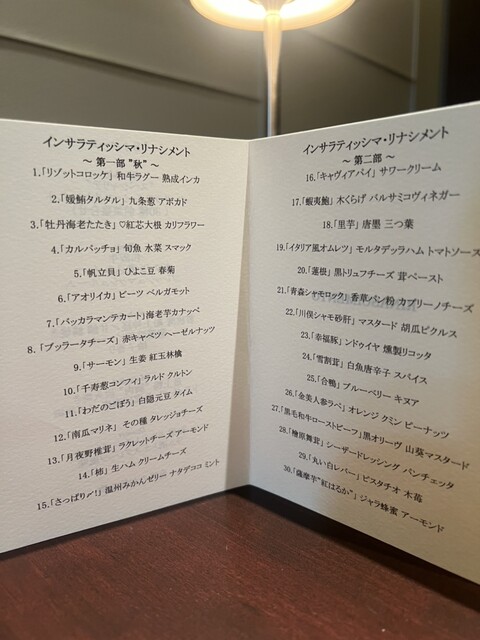 インサラティッシマ・リナシメント
～ 第一部 "秋" ～
1.「リゾットコロッケ」 和牛ラグー 熟成インカ
2.「媛鮪タルタル」 九条葱 アボカド
3.「牡丹海老たたき」 ♡紅芯大根 カリフラワー
4.「カルパッチョ」 旬魚 水菜 スマック
5.「帆立貝」 ひよこ豆 春菊
6.「アオリイカ」 ビーツ ベルガモット
7.「バッカラマンテカート」 海老芋カナッペ
8.「ブッラータチーズ」 赤キャベツ ヘーゼルナッツ
9.「サーモン」 生姜 紅玉林檎
10.「千寿葱コンフィ」 ラルド クルトン
11.「わだのごぼう」 白隠元豆 タイム
12.「南瓜マリネ」 その種 タレッジョチーズ
13.「月夜野椎茸」 ラクレットチーズ アーモンド
14.「柿」 生ハム クリームチーズ
15.「さっぱり〜!」 温州みかんゼリー ナタデココ ミント
インサラティッシマ・リナシメント
～ 第二部 ～
16.「キャヴィアパイ」 サワークリーム
17.「蝦夷鮑」 木くらげ バルサミコヴィネガー
18.「里芋」 唐墨 三つ葉
19.「イタリア風オムレツ」 モルタデッラハム トマトソース
20.「蓮根」 黒トリュフチーズ 茸ペースト
21.「青森シャモロック」 香草パン粉 カプリーノチーズ
22.「川俣シャモ砂肝」 マスタード 胡瓜ピクルス
23.「幸福豚」 ンドゥイヤ 燻製リコッタ
24.「雪割茸」 白魚唐辛子 スパイス
25.「合鴨」 ブルーベリー キヌア
26.「金美人参ラペ」 オレンジ クミン ピーナッツ
27.「黒毛和牛ローストビーフ」 黒オリーヴ 山葵マスタード
28.「檜原舞茸」 シーザードレッシング パンチェッタ
29.「丸い白レバー」 ピスタチオ 木苺
30.「薩摩芋"紅はるか"」 ジャラ蜂蜜 アーモンド